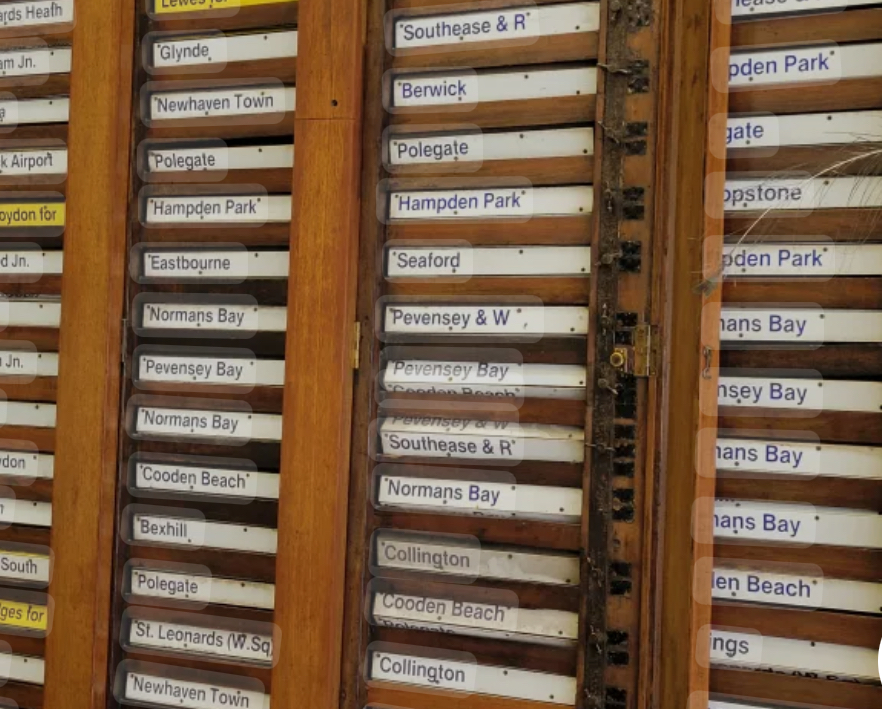 ards Heath
am Jn.
a
k Airport
oydon for
d Jn.
n Jn.
don
n
South
ges for
Lewes for
Glynde
Newhaven Town
Polegate
Hampden Park
Eastbourne
Normans Bay
Pevensey Bay
Normans Bay
Cooden Beach
Bexhill
Polegate
St. Leonards (W.Sq
Newhaven Town
Southease & R
Berwick
Polegate
Hampden Park
Seaford
Pevensey & W
Pevensey Bay
Cooden Beach
Pevensey & W
Southease & R
Normans Bay
Collington
Cooden Beach
Polegate
Collington
pden Park
gate
opstone
pden Park
mans Bay
nsey Bay
mans Bay
mans Bay
den Beach
ings